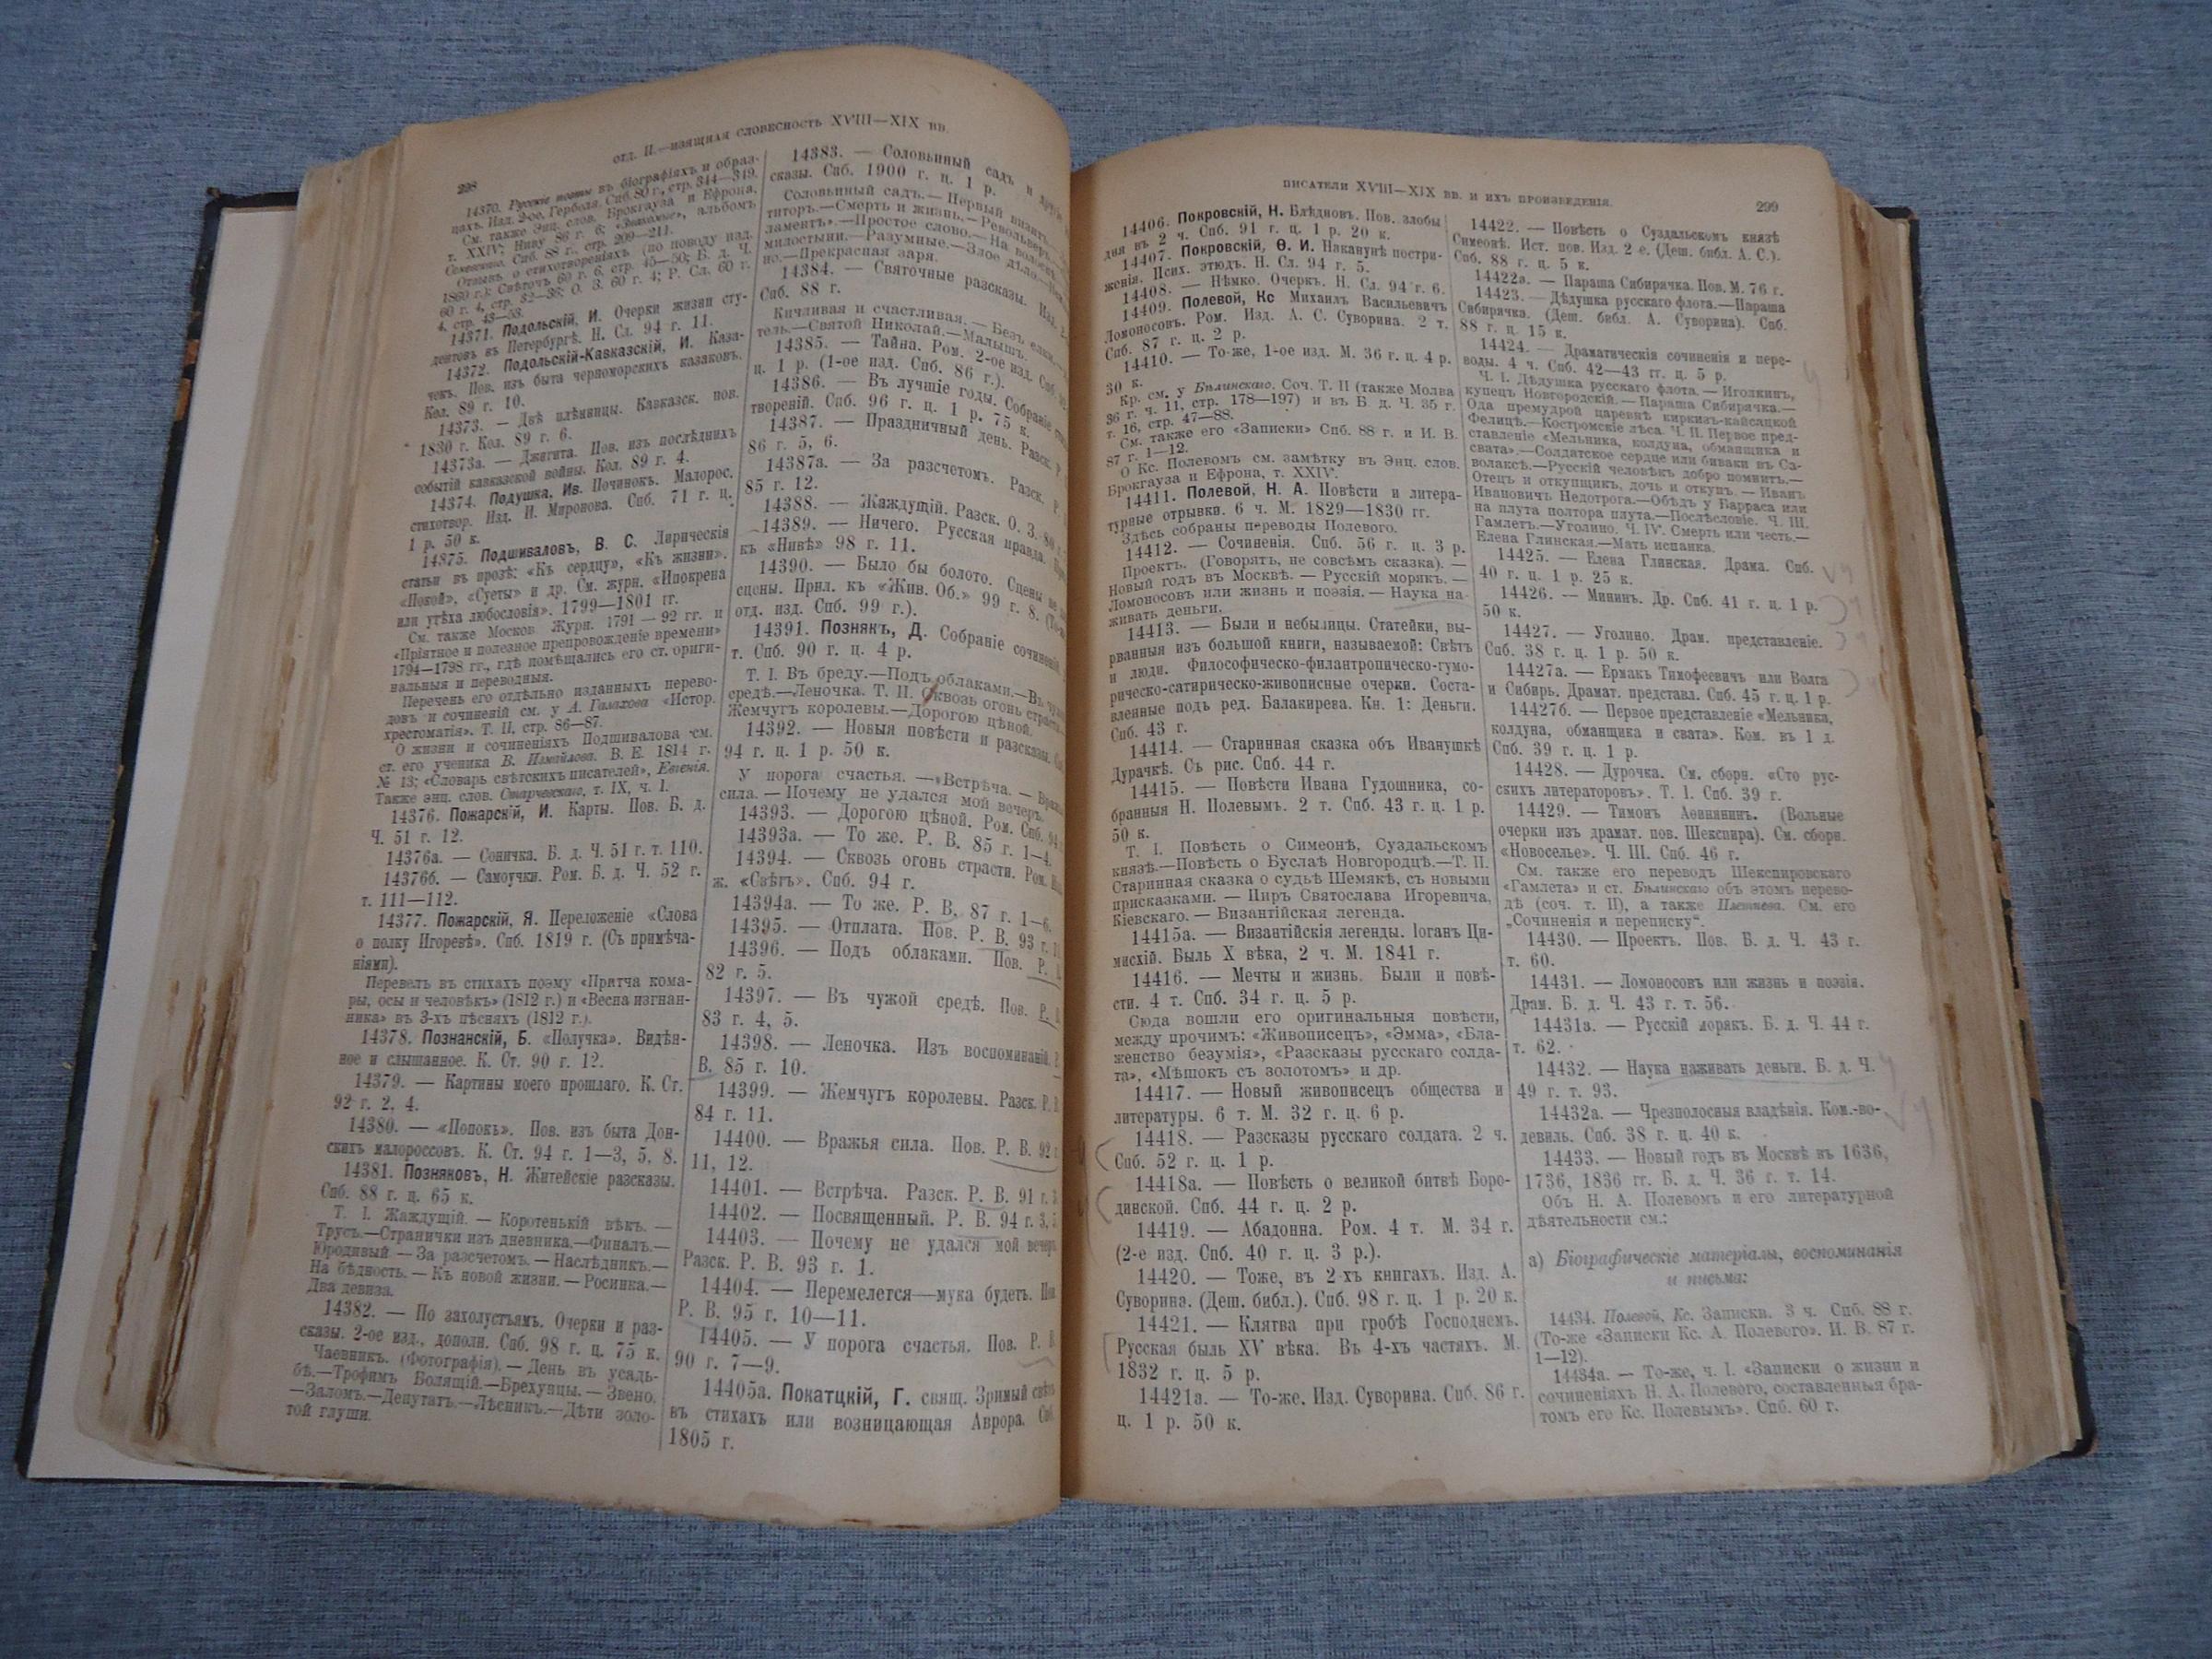 298
отд. II.—изящная словесность XVIII—XIX вв.
14370. Русскіе поэты въ біографіяхъ и образ-
цахъ. Изд. 2-ое. Гербеля. Спб. 80 г., стр. 344—349.
См. также Энц. слов. Брокгауза и Ефрона,
т. XXIV; Ниву 86 г. 6; «Знакомые», альбомъ
Семевскаго. Спб. 88 г., стр. 209—211.
Отзывъ о стихотвореніяхъ (по поводу изд.
1860 г.): Свѣточъ 60 г. 6, стр. 45—50; Б. д. Ч.
60 г. 4, стр. 32—36; О. З. 60 г. 4; Р. Сл. 60 г.
4, стр. 43—53.
14371. Подольскій, И. Очерки жизни сту-
дентовъ въ Петербургѣ. Н. Сл. 94 г. 11.
14372. Подольскій-Кавказскій, И. Каза-
чекъ. Пов. изъ быта черноморскихъ казаковъ.
Кол. 89 г. 10.
14373. — Двѣ плѣнницы. Кавказск. пов.
1830 г. Кол. 89 г. 6.
14373а. — Джигита. Пов. изъ послѣднихъ
событій кавказской войны. Кол. 89 г. 4.
14374. Подушка, Ив. Починокъ. Малорос.
стихотвор. Изд. И. Миронова. Спб. 71 г. ц.
1 р. 50 к.
14375. Подшиваловъ, В. С. Лирическія
статьи въ прозѣ: «Къ сердцу», «Къ жизни».
«Покой», «Суеты» и др. См. журн. «Ипокрена
или утѣха любословія». 1799—1801 гг.
См. также Москов. Журн. 1791 — 92 гг. и
«Пріятное и полезное препровожденіе времени»
1794—1798 гг., гдѣ помѣщались его ст. ориги-
нальныя и переводныя.
Перечень его отдѣльно изданныхъ перево-
довъ и сочиненій см. у А. Галахова «Истор.
хрестоматія». Т. II, стр. 86—87.
О жизни и сочиненіяхъ Подшивалова см.
ст. его ученика В. Измайлова. В. Е. 1814 г.
№ 13; «Словарь свѣтскихъ писателей», Евгенія.
Также энц. слов. Старчевскаго, т. IX, ч. 1.
14376. Пожарскій, И. Карты. Пов. Б. д.
Ч. 51 г. 12.
14376а. — Соничка. Б. д. Ч. 51 г. т. 110.
14376б. — Самоучки. Ром. Б. д. Ч. 52 г.
т. 111—112.
14377. Пожарскій, Я. Переложеніе «Слова
о полку Игоревѣ». Спб. 1819 г. (Съ примѣча-
ніями).
Перевелъ въ стихахъ поэму «Притча кома-
ры, осы и человѣкъ» (1812 г.) и «Весна изгнан-
ника» въ 3-хъ пѣсняхъ (1812 г.).
14378. Познанскій, Б. «Получка». Видѣн-
ное и слышанное. К. Ст. 90 г. 12.
14379. — Картины моего прошлаго. К. Ст.
92 г. 2, 4.
14380. — «Попокъ». Пов. изъ быта Дон-
скихъ малороссовъ. К. Ст. 94 г. 1—3, 5, 8.
14381. Позняковъ, Н. Житейскіе разсказы.
Спб. 88 г. ц. 65 к.
Т. I. Жаждущій. — Коротенькій вѣкъ. —
Трусъ.—Странички изъ дневника.—Финалъ.—
Юродивый — За разсчетомъ. — Наслѣдникъ.—
На бѣдность. — Къ новой жизни. — Росинка.—
Два девиза.
14382. — По захолустьямъ. Очерки и раз-
сказы. 2-ое изд., дополн. Спб. 98 г. ц. 75 к.
Чаевникъ. (Фотографія). — День въ усадь-
бѣ.—Трофимъ Болящій.—Брехунцы. — Звено.
—Заломъ.—Депутатъ.—Лѣсникъ.—Дѣти золо-
той глуши.
14383. — Соловьиный садъ и другіе
сказы. Спб. 1900 г. ц. 1 р.
Соловьиный садъ. — Первый визитъ.
титоръ.—Смерть и жизнь.—Револьверъ.
ламентъ».—Простое слово.—На волосокъ
милостыни.—Разумные.—Злое дѣло.
но.—Прекрасная заря.
14384. — Святочные разсказы. Изд. 2
Спб. 88 г.
Кичливая и счастливая. — Безъ елки.
тель.—Святой Николай.—Малышъ.
14385. — Тайна. Ром. 2-ое изд. Спб.
ц. 1 р. (1-ое изд. Спб. 86 г.).
14386. — Въ лучшіе годы. Собраніе сти
твореній. Спб. 96 г. ц. 1 р. 75 к.
14387. — Праздничный день. Разск. Р.
86 г. 5, 6.
14387а. — За разсчетомъ. Разск. Р.
85 г. 12.
14388. — Жаждущій. Разск. О. З. 80 г.
14389. — Ничего. Русская правда.
къ «Нивѣ» 98 г. 11.
14390. — Было бы болото. Сцены не для
сцоны. Прил. къ «Жив. Об.» 99 г. 8. (То-же
отд. изд. Спб. 99 г.).
14391. Познякъ, Д. Собраніе сочиненій.
т. Спб. 90 г. ц. 4 р.
Т. I. Въ бреду.—Подъ облаками.—Въ чужой
средѣ.—Леночка. Т. II. Сквозь огонь страсти.
Жемчугъ королевы.—Дорогою цѣной.
14392. — Новыя повѣсти и разсказы. Спб.
94 г. ц. 1 р. 50 к.
У порога счастья. —«Встрѣча. — Вражья
сила. — Почему не удался мой вечеръ.
14393. — Дорогою цѣной. Ром. Спб. 94
14393а. — То же. Р. В. 85 г. 1—4.
14394. — Сквозь огонь страсти. Ром. Изд.
ж. «Свѣтъ». Спб. 94 г.
14394а. — То же. Р. В. 87 г. 1—6.
14395. — Отплата. Пов. Р. В. 93 г. 11
14396. — Подъ облаками. Пов. Р. В.
82 г. 5.
14397. — Въ чужой средѣ. Пов. Р. В.
83 г. 4, 5.
14398. — Леночка. Изъ воспоминаній. Р.
В. 85 г. 10.
14399. — Жемчугъ королевы. Разск. Р. В.
84 г. 11.
14400. — Вражья сила. Пов. Р. В. 92 г.
11, 12.
14401. — Встрѣча. Разск. Р. В. 91 г. 3.
14402. — Посвященный. Р. В. 94 г. 3, 5
14403. — Почему не удался мой вечеръ.
Разск. Р. В. 93 г. 1.
14404. — Перемелется—мука будетъ. Пов.
Р. В. 95 г. 10—11.
14405. — У порога счастья. Пов. Р. В.
90 г. 7—9.
14405а. Покатцкій, Г. свящ. Зримый свѣтъ
въ стихахъ или возницающая Аврора. Спб.
1805 г.
писатели XVIII—XIX вв. и ихъ произведенія.
299
14406. Покровскій, Н. Блѣдновъ. Пов. злобы
дня въ 2 ч. Спб. 91 г. ц. 1 р. 20 к.
14407. Покровскій, Ѳ. И. Наканунѣ постри-
женія. Псих. этюдъ. Н. Сл. 94 г. 5.
14408. — Нѣмко. Очеркъ. Н. Сл. 94 г. 6.
14409. Полевой, Кс Михаилъ Васильевичъ
Ломоносовъ. Ром. Изд. А. С. Суворина. 2 т.
Спб. 87 г. ц. 2 р.
14410. — То-же, 1-ое изд. М. 36 г. ц. 4 р.
30 к.
Кр. см. у Бѣлинскаго. Соч. Т. II (также Молва
36 г. ч. 11, стр. 178—197) и въ Б. д. Ч. 35 г.
т. 16, стр. 47—88.
См. также его «Записки» Спб. 88 г. и И. В.
87 г. 1—12.
О Кс. Полевомъ см. замѣтку въ Энц. слов.
Брокгауза и Ефрона, т. XXIV.
14411. Полевой, Н. А. Повѣсти и литера-
турные отрывки. 6 ч. М. 1829—1830 гг.
Здѣсь собраны переводы Полевого.
14412. — Сочиненія. Спб. 56 г. ц. 3 р.
Проектъ. (Говорятъ, не совсѣмъ сказка). —
Новый годъ въ Москвѣ. — Русскій морякъ. —
Ломоносовъ или жизнь и поэзія. — Наука на-
живать деньги.
14413. — Были и небылицы. Статейки, вы-
рванныя изъ большой книги, называемой: Свѣтъ
и люди. Философическо-филантропическо-гумо-
рическо-сатирическо-живописные очерки. Соста-
вленные подъ ред. Балакирева. Кн. 1: Деньги.
Спб. 43 г.
14414. — Старинная сказка объ Иванушкѣ
Дурачкѣ. Съ рис. Спб. 44 г.
14415. — Повѣсти Ивана Гудошника, со-
бранныя Н. Полевымъ. 2 т. Спб. 43 г. ц. 1 р.
50 к.
Т. I. Повѣсть о Симеонѣ, Суздальскомъ
князѣ.—Повѣсть о Буслаѣ Новгородцѣ.—Т. II.
Старинная сказка о судьѣ Шемякѣ, съ новыми
присказками. — Пиръ Святослава Игоревича,
Кіевскаго. — Византійская легенда.
14415а. — Византійскія легенды. Іоганъ Ци-
мисхій. Быль X вѣка, 2 ч. М. 1841 г.
14416. — Мечты и жизнь. Были и повѣ-
сти. 4 т. Спб. 34 г. ц. 5 р.
Сюда вошли его оригинальныя повѣсти,
между прочимъ: «Живописецъ», «Эмма», «Бла-
женство безумія», «Разсказы русскаго солда-
та», «Мѣшокъ съ золотомъ» и др.
14417. — Новый живописецъ общества и
литературы. 6 т. М. 32 г. ц. 6 р.
14418. — Разсказы русскаго солдата. 2 ч.
Спб. 52 г. ц. 1 р.
14418а. — Повѣсть о великой битвѣ Боро-
динской. Спб. 44 г. ц. 2 р.
14419. — Абадонна. Ром. 4 т. М. 34 г.
(2-е изд. Спб. 40 г. ц. 3 р.).
14420. — Тоже, въ 2-хъ книгахъ. Изд. А.
Суворина. (Деш. библ.). Спб. 98 г. ц. 1 р. 20 к.
14421. — Клятва при гробѣ Господнемъ.
Русская быль XV вѣка. Въ 4-хъ частяхъ. М.
1832 г. ц. 5 р.
14421а. — То-же. Изд. Суворина. Спб. 86 г.
ц. 1 р. 50 к.
14422. — Повѣсть о Суздальскомъ князѣ
Симеонѣ. Ист. пов. Изд. 2 е. (Деш. библ. А. С.).
Спб. 88 г. ц. 5 к.
14422а. — Параша Сибирячка. Пов. М. 76 г.
14423. — Дѣдушка русскаго флота.—Параша
Сибирячка. (Деш. библ. А. Суворина). Спб.
88 г. ц. 15 к.
14424. — Драматическія сочиненія и пере-
воды. 4 ч. Спб. 42—43 гг. ц. 5 р.
Ч. I. Дѣдушка русскаго флота. — Иголкинъ,
купецъ Новгородскій. — Параша Сибирячка.—
Ода премудрой царевнѣ киркизъ-кайсацкой
Фелицѣ.—Костромскіе лѣса. Ч. II. Первое пред-
ставленіе «Мельника, колдуна, обманщика и
свата».—Солдатское сердце или биваки въ Са-
волаксѣ.—Русскій человѣкъ добро помнитъ.—
Отецъ и откупщикъ, дочь и откупъ. — Иванъ
Ивановичъ Недотрога.—Обѣдъ у Барраса или
на плута полтора плута.—Послѣсловіе. Ч. III.
Гамлетъ.—Уголино. Ч. IV. Смерть или честь.—
Елена Глинская.—Мать испанка.
14425. — Елена Глинская. Драма. Спб.
40 г. ц. 1 р. 25 к.
14426. — Мининъ. Др. Спб. 41 г. ц. 1 р.
50 к.
14427. — Уголино. Драм. представленіе.
Спб. 38 г. ц. 1 р. 50 к.
14427а. — Ермакъ Тимофеевичъ или Волга
и Сибирь. Драмат. представл. Спб. 45 г. ц. 1 р.
14427б. — Первое представленіе «Мельника,
колдуна, обманщика и свата». Ком. въ 1 д.
Спб. 39 г. ц. 1 р.
14428. — Дурочка. См. сборн. «Сто рус-
скихъ литераторовъ». Т. 1. Спб. 39 г.
14429. — Тимонъ Аѳинянинъ. (Вольные
очерки изъ драмат. пов. Шекспира). См. сборн.
«Новоселье». Ч. III. Спб. 46 г.
См. также его переводъ Шекспировскаго
«Гамлета» и ст. Бѣлинскаго объ этомъ перево-
дѣ (соч. т. II), а также Плетнева. См. его
„Сочиненія и переписку“.
14430. — Проектъ. Пов. Б. д. Ч. 43 г.
т. 60.
14431. — Ломоносовъ или жизнь и поэзія.
Драм. Б. д. Ч. 43 г. т. 56.
14431а. — Русскій морякъ. Б. д. Ч. 44 г.
т. 62.
14432. — Наука наживать деньги. Б. д. Ч.
49 г. т. 93.
14432а. — Чрезполосныя владѣнія. Ком.-во-
девиль. Спб. 38 г. ц. 40 к.
14433. — Новый годъ въ Москвѣ въ 1636,
1736, 1836 гг. Б. д. Ч. 36 г. т. 14.
Объ Н. А. Полевомъ и его литературной
дѣятельности см.:
а) Біографическіе матеріалы, воспоминанія
и письма:
14434. Полевой, Кс. Записки. 3 ч. Спб. 88 г.
(То-же «Записки Кс. А. Полевого». И. В. 87 г.
1—12).
14434а. — То-же, ч. I. «Записки о жизни и
сочиненіяхъ Н. А. Полевого, составленныя бра-
томъ его Кс. Полевымъ». Спб. 60 г.